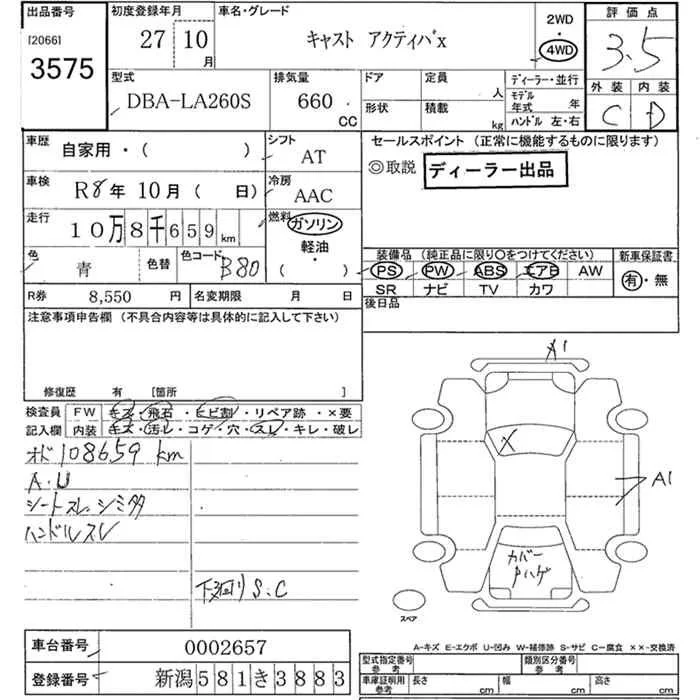 出品番号
[2066]
3575
初度登録年月
27 10 月
車名・グレード
キャスト アクティバx
2WD
・
4WD
評価点
3.5
外装 内装
C D
型式
DBA-LA260S
排気量
660 CC
ドア
形状
定員 人
積載 kg
ディーラー・並行
モデル年式 年
ハンドル 左・右
車歴
自家用・( )
シフト
AT
セールスポイント (正常に機能するものに限ります)
◎取説 ディーラー出品
車検
R8年 10月 ( 日)
冷房
AAC
走行
10万8千659km
燃料
ガソリン
軽油・
( )
色
青
色替
色コード
B80
装備品 (純正品に限り○をつけてください)
PS PW ABS エアB AW
SR ナビ TV カワ
新車保証書
有・無
R券 8,550 円
名変期限 月 日
後日品
注意事項申告欄 (不具合内容等は具体的に記入して下さい)
修復歴 有 [箇所 ]
検査員記入欄
FW キズ・飛石・ヒビ割・リペア跡・×要
内装 キズ・汚レ・コゲ・穴・スレ・キレ・破レ
オド108659 km
A.U
シートスレ、シミ多
ハンドルスレ
下廻りS.C
A1
X
A1
カバー
Pハゲ
スペア
A-キズ E-エクボ U-凹み W-補修跡 S-サビ C-腐食 ××-交換済
車台番号 0002657
登録番号 新潟581き3883
型式指定番号 参考
類別区分番号 参考
車庫証明用 参考
長さ cm
幅 cm
高さ cm